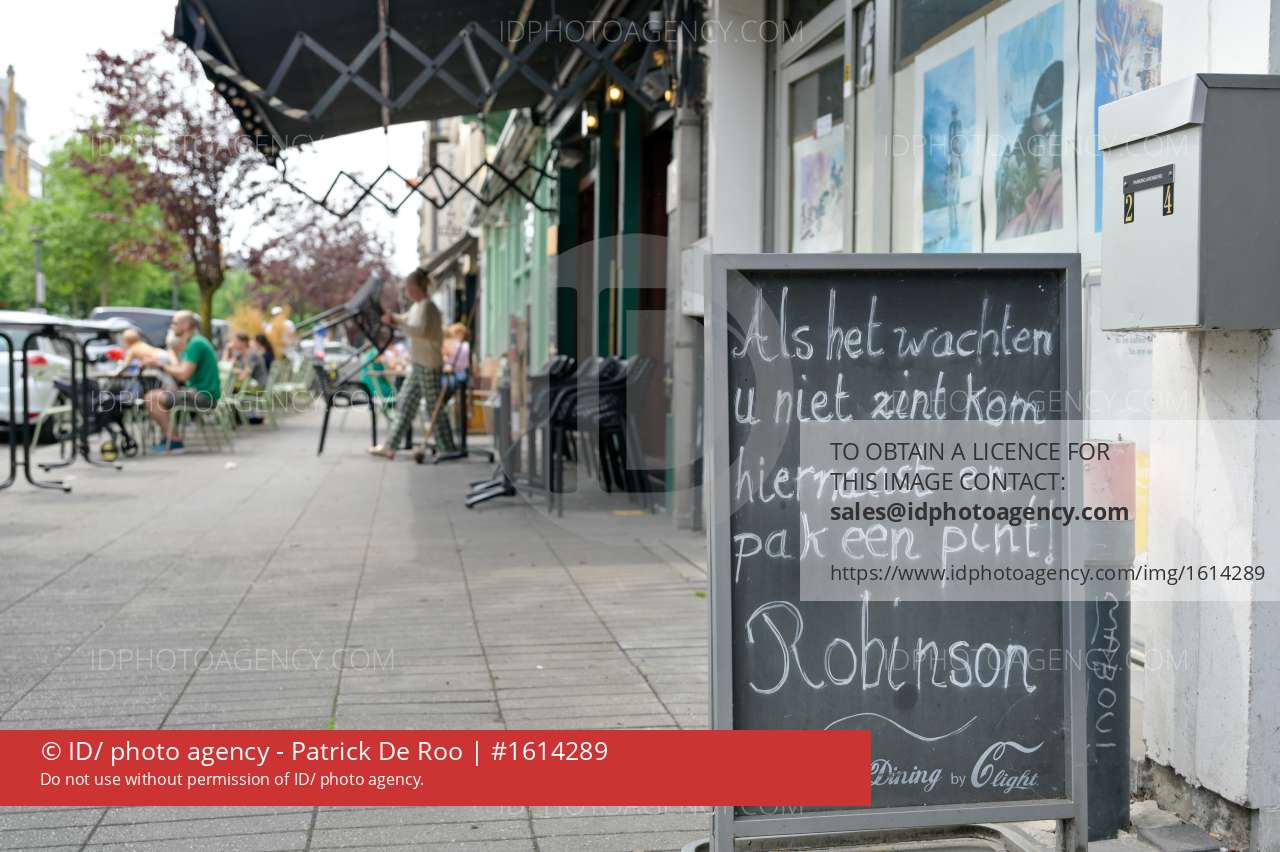 IDPHOTOAGENCY.COM
IDPHOTOAGENCY.COM
IDPHOTOAGENCY.COM
2 4
Als het wachten
u niet zint kom
IDPHOTOAGENCY.COM
IDPHOTOAGENCY.COM
hiernaast en
pak een pint!
TO OBTAIN A LICENCE FOR
THIS IMAGE CONTACT:
sales@idphotoagency.com
https://www.idphotoagency.com/img/1614289
ID
Robinson
IDPHOTOAGENCY.COM
IDPHOTOAGENCY.COM
Dining by C light
© ID/ photo agency - Patrick De Roo | #1614289
Do not use without permission of ID/ photo agency.
IDPHOTOAGENCY.COM